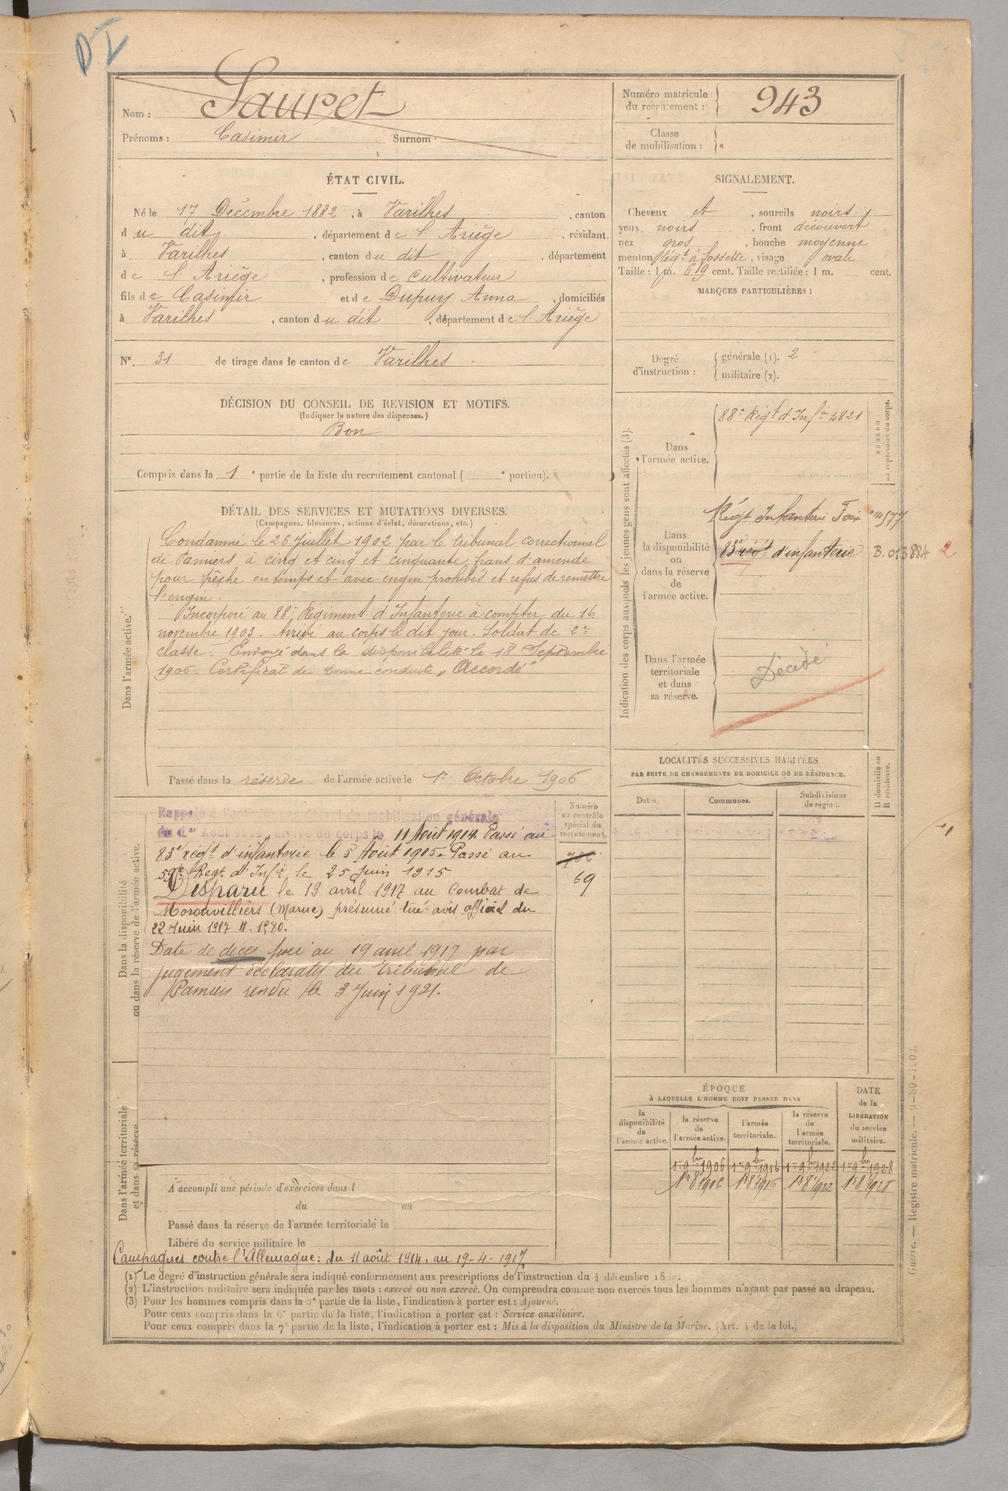 DI
Nom : Sauret
Prénoms : Casimir Surnom
Numéro matricule du recrutement : 943
Classe de mobilisation :
ÉTAT CIVIL.
Né le 17 Décembre 1882, à Varilhes, canton
du dit, département de l'Ariège, résidant
à Varilhes, canton du dit, département
de l'Ariège, profession de Cultivateur
fils de Casimir et de Dupuy Anna, domiciliés
à Varilhes, canton du dit, département de l'Ariège
N° 31 de tirage dans le canton de Varilhes
SIGNALEMENT.
Cheveux et, sourcils noirs
yeux noirs, front découvert
nez gros, bouche moyenne
menton à fossette, visage ovale
Taille : 1 m. 619 cent. Taille rectifiée : 1 m. cent.
MARQUES PARTICULIÈRES :
Degré d'instruction : générale (1). 2
militaire (2).
DÉCISION DU CONSEIL DE REVISION ET MOTIFS.
(Indiquer la nature des dispenses.)
Bon
Compris dans la 1e partie de la liste du recrutement cantonal ( e portion).
DÉTAIL DES SERVICES ET MUTATIONS DIVERSES.
(Campagnes, blessures, actions d'éclat, décorations, etc.)
Dans l'armée active.
Condamné le 26 juillet 1902 par le tribunal correctionnel
de Pamiers à cinq et cinq et cinquante frans d'amende
pour pêche en temps et avec engin prohibés et refus de remettre
l'engin.
Incorporé au 88e Régiment d'Infanterie à compter du 16
novembre 1903. Arrivé au corps le dit jour. Soldat de 2e
classe. Envoyé dans la disponibilité le 18 Septembre
1906. Certificat de bonne conduite "Accordé"
Passé dans la réserve de l'armée active le 1er Octobre 1906
Indication des corps auxquels les jeunes gens sont affectés (3).
NUMÉRO au répertoire du corps.
Dans l'armée active.
88e Régt d'Infie 4821
Dans la disponibilité ou dans la réserve de l'armée active.
Régt Infanterie Foix
83e régt d'infanterie B. 013884 2
Dans l'armée territoriale et dans sa réserve.
Décédé
LOCALITÉS SUCCESSIVES HABITÉES
PAR SUITE DE CHANGEMENTS DE DOMICILE OU DE RÉSIDENCE.
Dates. Communes. Subdivisions de région. D domicile ou R résidence.
Dans la disponibilité ou dans la réserve de l'armée active.
Numéro au contrôle spécial du recrutement.
Rappelé à l'activité mobilisation générale
du 1er Août 1914, arrivé au corps le 11 Août 1914. Passé au
83e régt d'infanterie le 5 Août 1915. Passé au
59e Régt d'Infie le 25 Juin 1915
69
Disparu le 19 avril 1917 au Combat de
Moronvilliers (Marne) présumé tué avis officiel du
22 Juin 1917
Date de décès fixée au 19 avril 1917 par
jugement déclaratif du Tribunal de
Pamiers rendu le 3 Juin 1921.
ÉPOQUE
À LAQUELLE L'HOMME DOIT PASSER DANS
DATE de la LIBÉRATION du service militaire.
la disponibilité de l'armée active.
la réserve de l'armée active.
l'armée territoriale.
la réserve de l'armée territoriale.
1er 9bre 1906 1er 9bre 1916 1er 9bre 1922 1er 9bre 1928
1er 8bre 1906 1er 8bre 1916 1er 8bre 1922 1er 8bre 1928
Dans l'armée territoriale et dans sa réserve.
A accompli une période d'exercices dans l
du au
Passé dans la réserve de l'armée territoriale le
Libéré du service militaire le
Campagnes contre l'Allemagne : du 11 août 1914, au 19-4-1917
(1) Le degré d'instruction générale sera indiqué conformément aux prescriptions de l'instruction du 4 décembre
(2) L'instruction militaire sera indiquée par les mots : exercé ou non exercé. On comprendra comme non exercés tous les hommes n'ayant pas passé au drapeau.
(3) Pour les hommes compris dans la 5e partie de la liste, l'indication à porter est : Ajourné.
Pour ceux compris dans la 6e partie de la liste, l'indication à porter est : Service auxiliaire.
Pour ceux compris dans la 7e partie de la liste, l'indication à porter est : Mis à la disposition du Ministre de la Marine. (Art. 4 de la loi.)
Guerre. — Registre matricule.